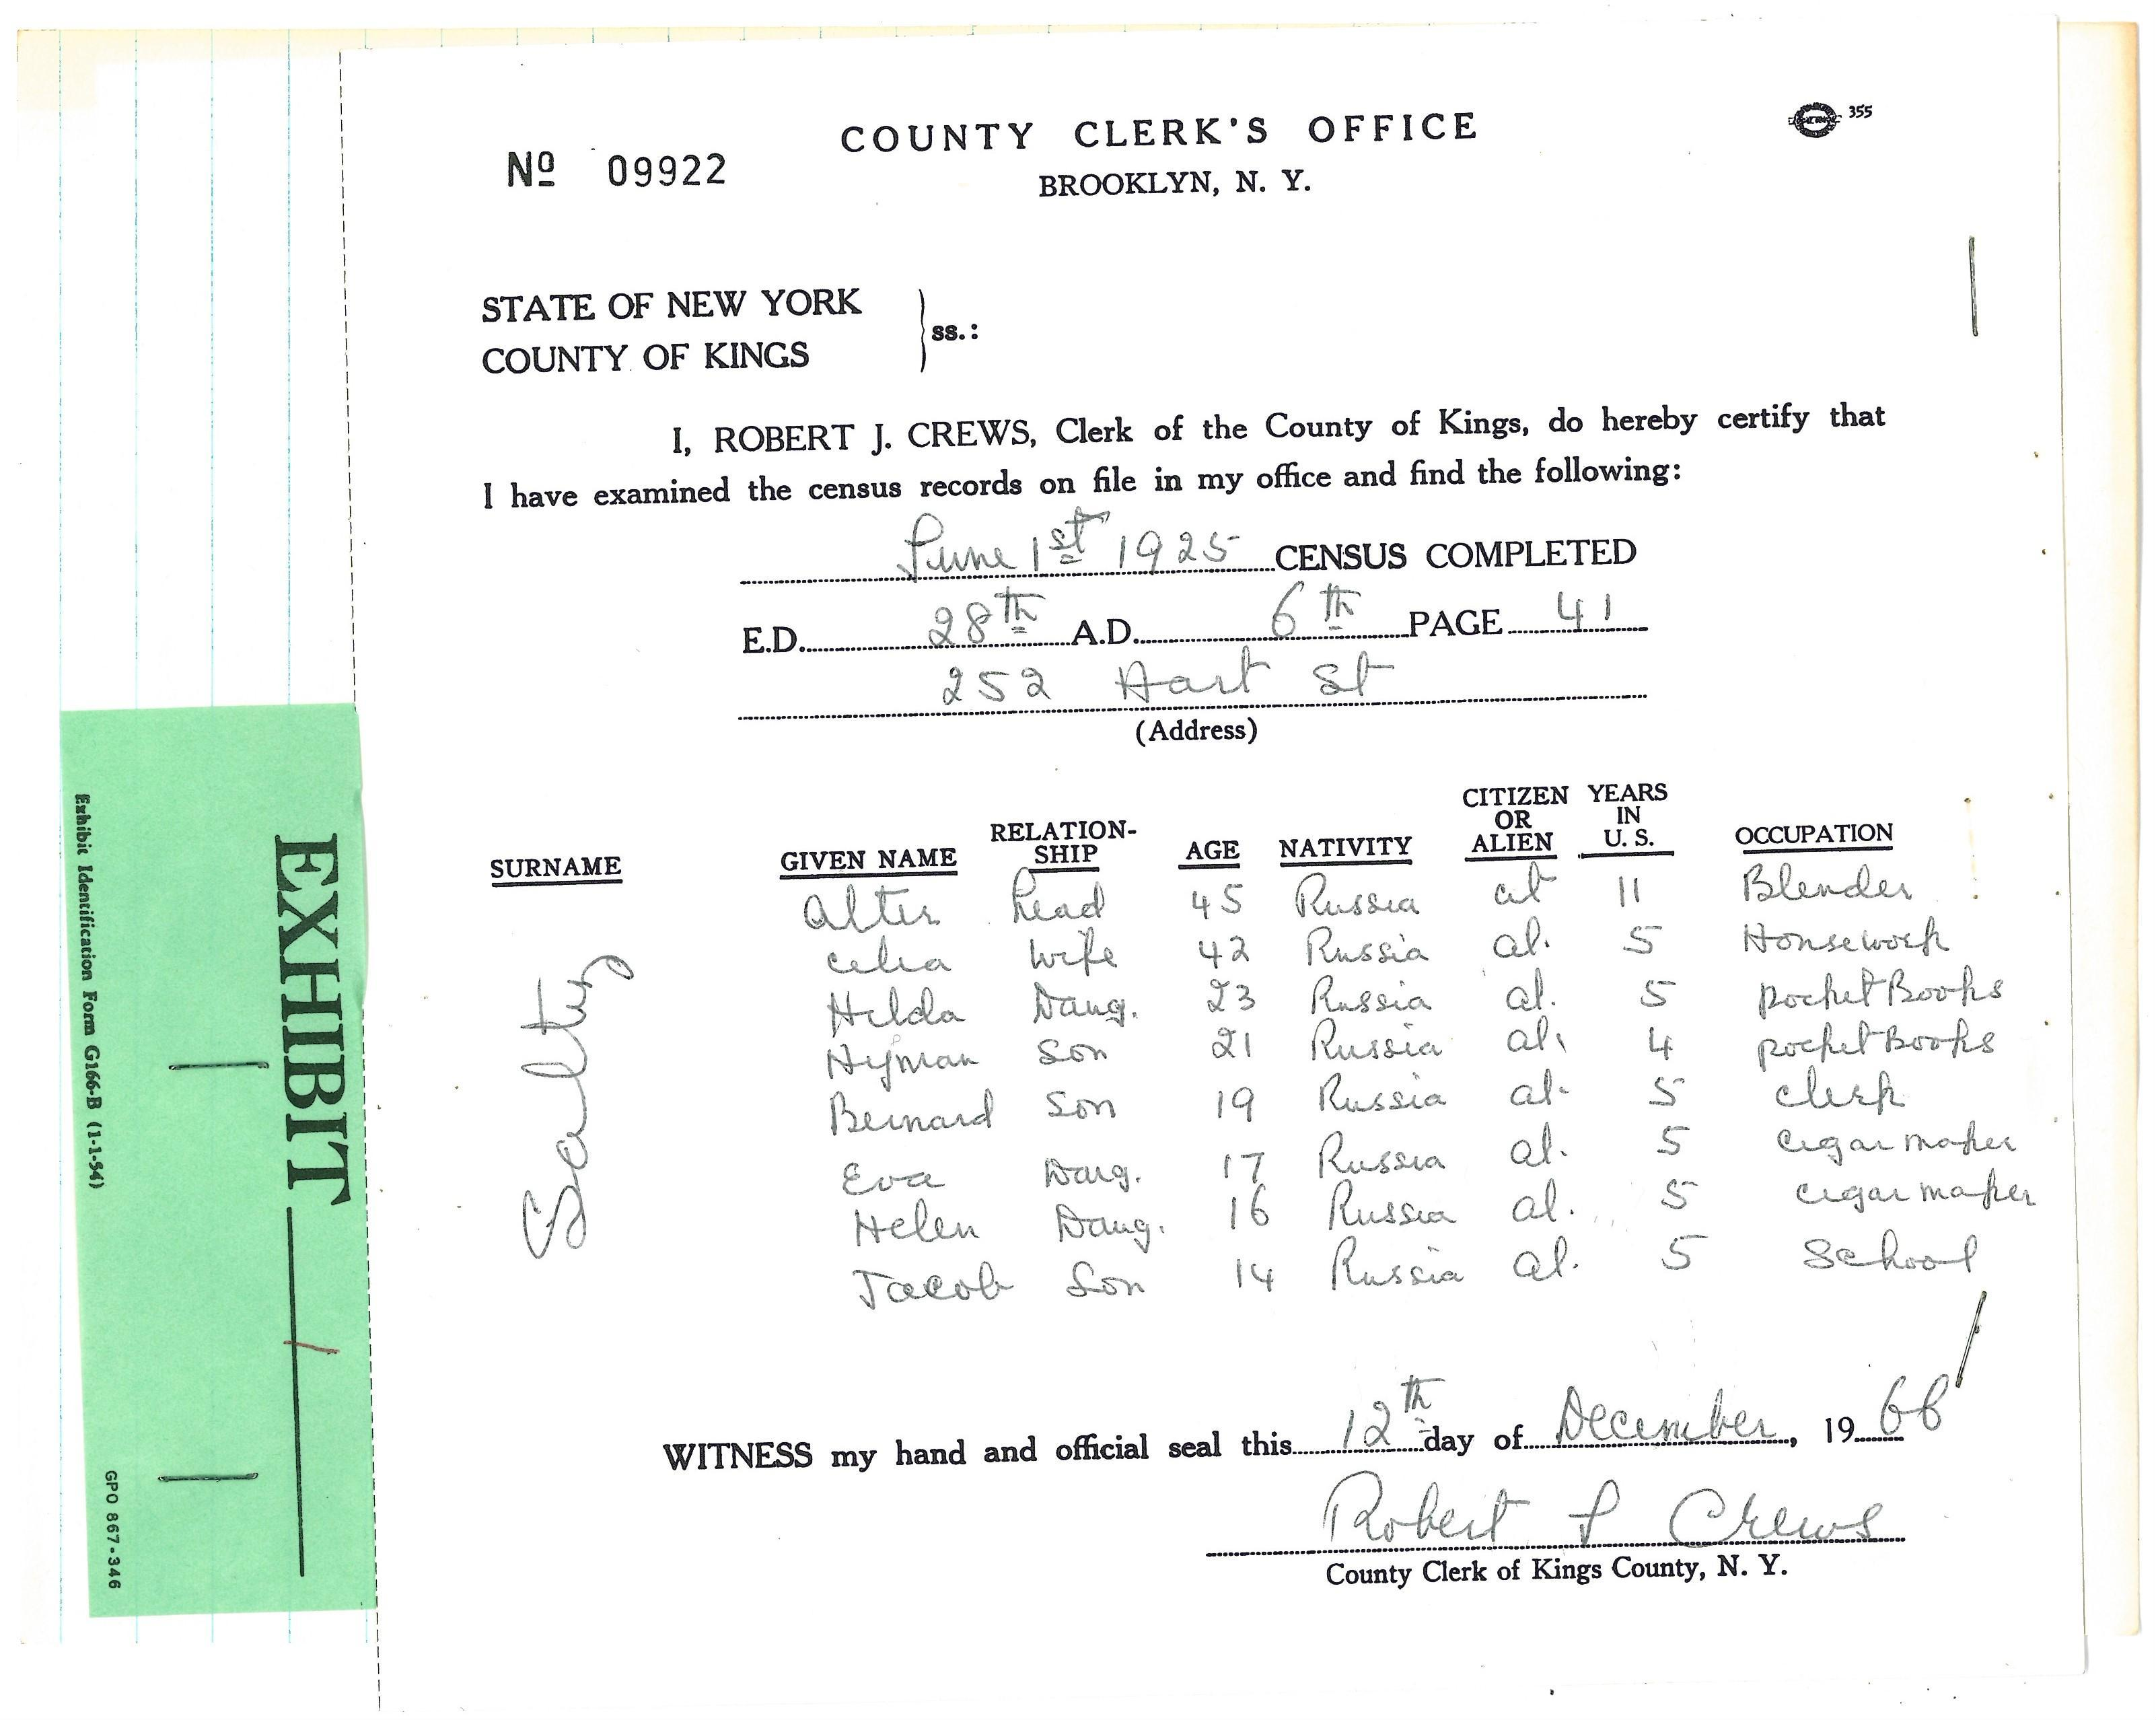 COUNTY CLERK'S OFFICE
355
Nº 09922
BROOKLYN, N. Y.
STATE OF NEW YORK
COUNTY OF KINGS
ss.:
I, ROBERT J. CREWS, Clerk of the County of Kings, do hereby certify that
I have examined the census records on file in my office and find the following:
June 1st 1925 CENSUS COMPLETED
E.D. 28th A.D. 6th PAGE 41
252 Hart St
(Address)
SURNAME GIVEN NAME RELATION-SHIP AGE NATIVITY CITIZEN OR ALIEN YEARS IN U. S. OCCUPATION
Alter head 45 Russia cit 11 Blender
Celia wife 42 Russia al. 5 Housework
Hilda Daug. 23 Russia al. 5 pocket Books
Hyman Son 21 Russia al. 4 pocket Books
Bernard Son 19 Russia al. 5 clerk
Eva Daug. 17 Russia al. 5 cigar maker
Helen Daug. 16 Russia al. 5 cigar maker
Jacob Son 14 Russia al. 5 School
WITNESS my hand and official seal this 12th day of December, 1966
Robert J Crews
County Clerk of Kings County, N. Y.
EXHIBIT 1
Exhibit Identification Form G166-B (1-1-54)
GPO 867-346